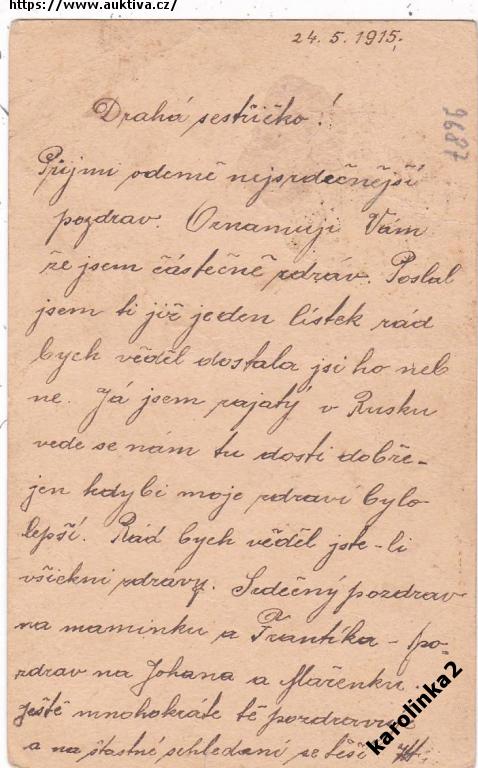 https://www.auktiva.cz/
24.5.1915.
9687
Drahá sestřičko!
Přijmi odemě nejsrdečnější
pozdrav. Oznamuji Vám
že jsem částečně zdráv. Poslal
jsem ti již jeden lístek rád
bych věděl dostala jsi ho neb
ne. Já jsem zajatý v Rusku
vede se nám tu dosti dobře-
jen kdybi moje zdraví bylo
lepší. Rád bych věděl jste-li
všickni zdravy. Srdečný pozdrav
na maminku a Frantíka - po-
zdrav na Johana a Mařenku.
ještě mnohokráte tě pozdravuje
a na šťastné schledaní se těší
karolinka2